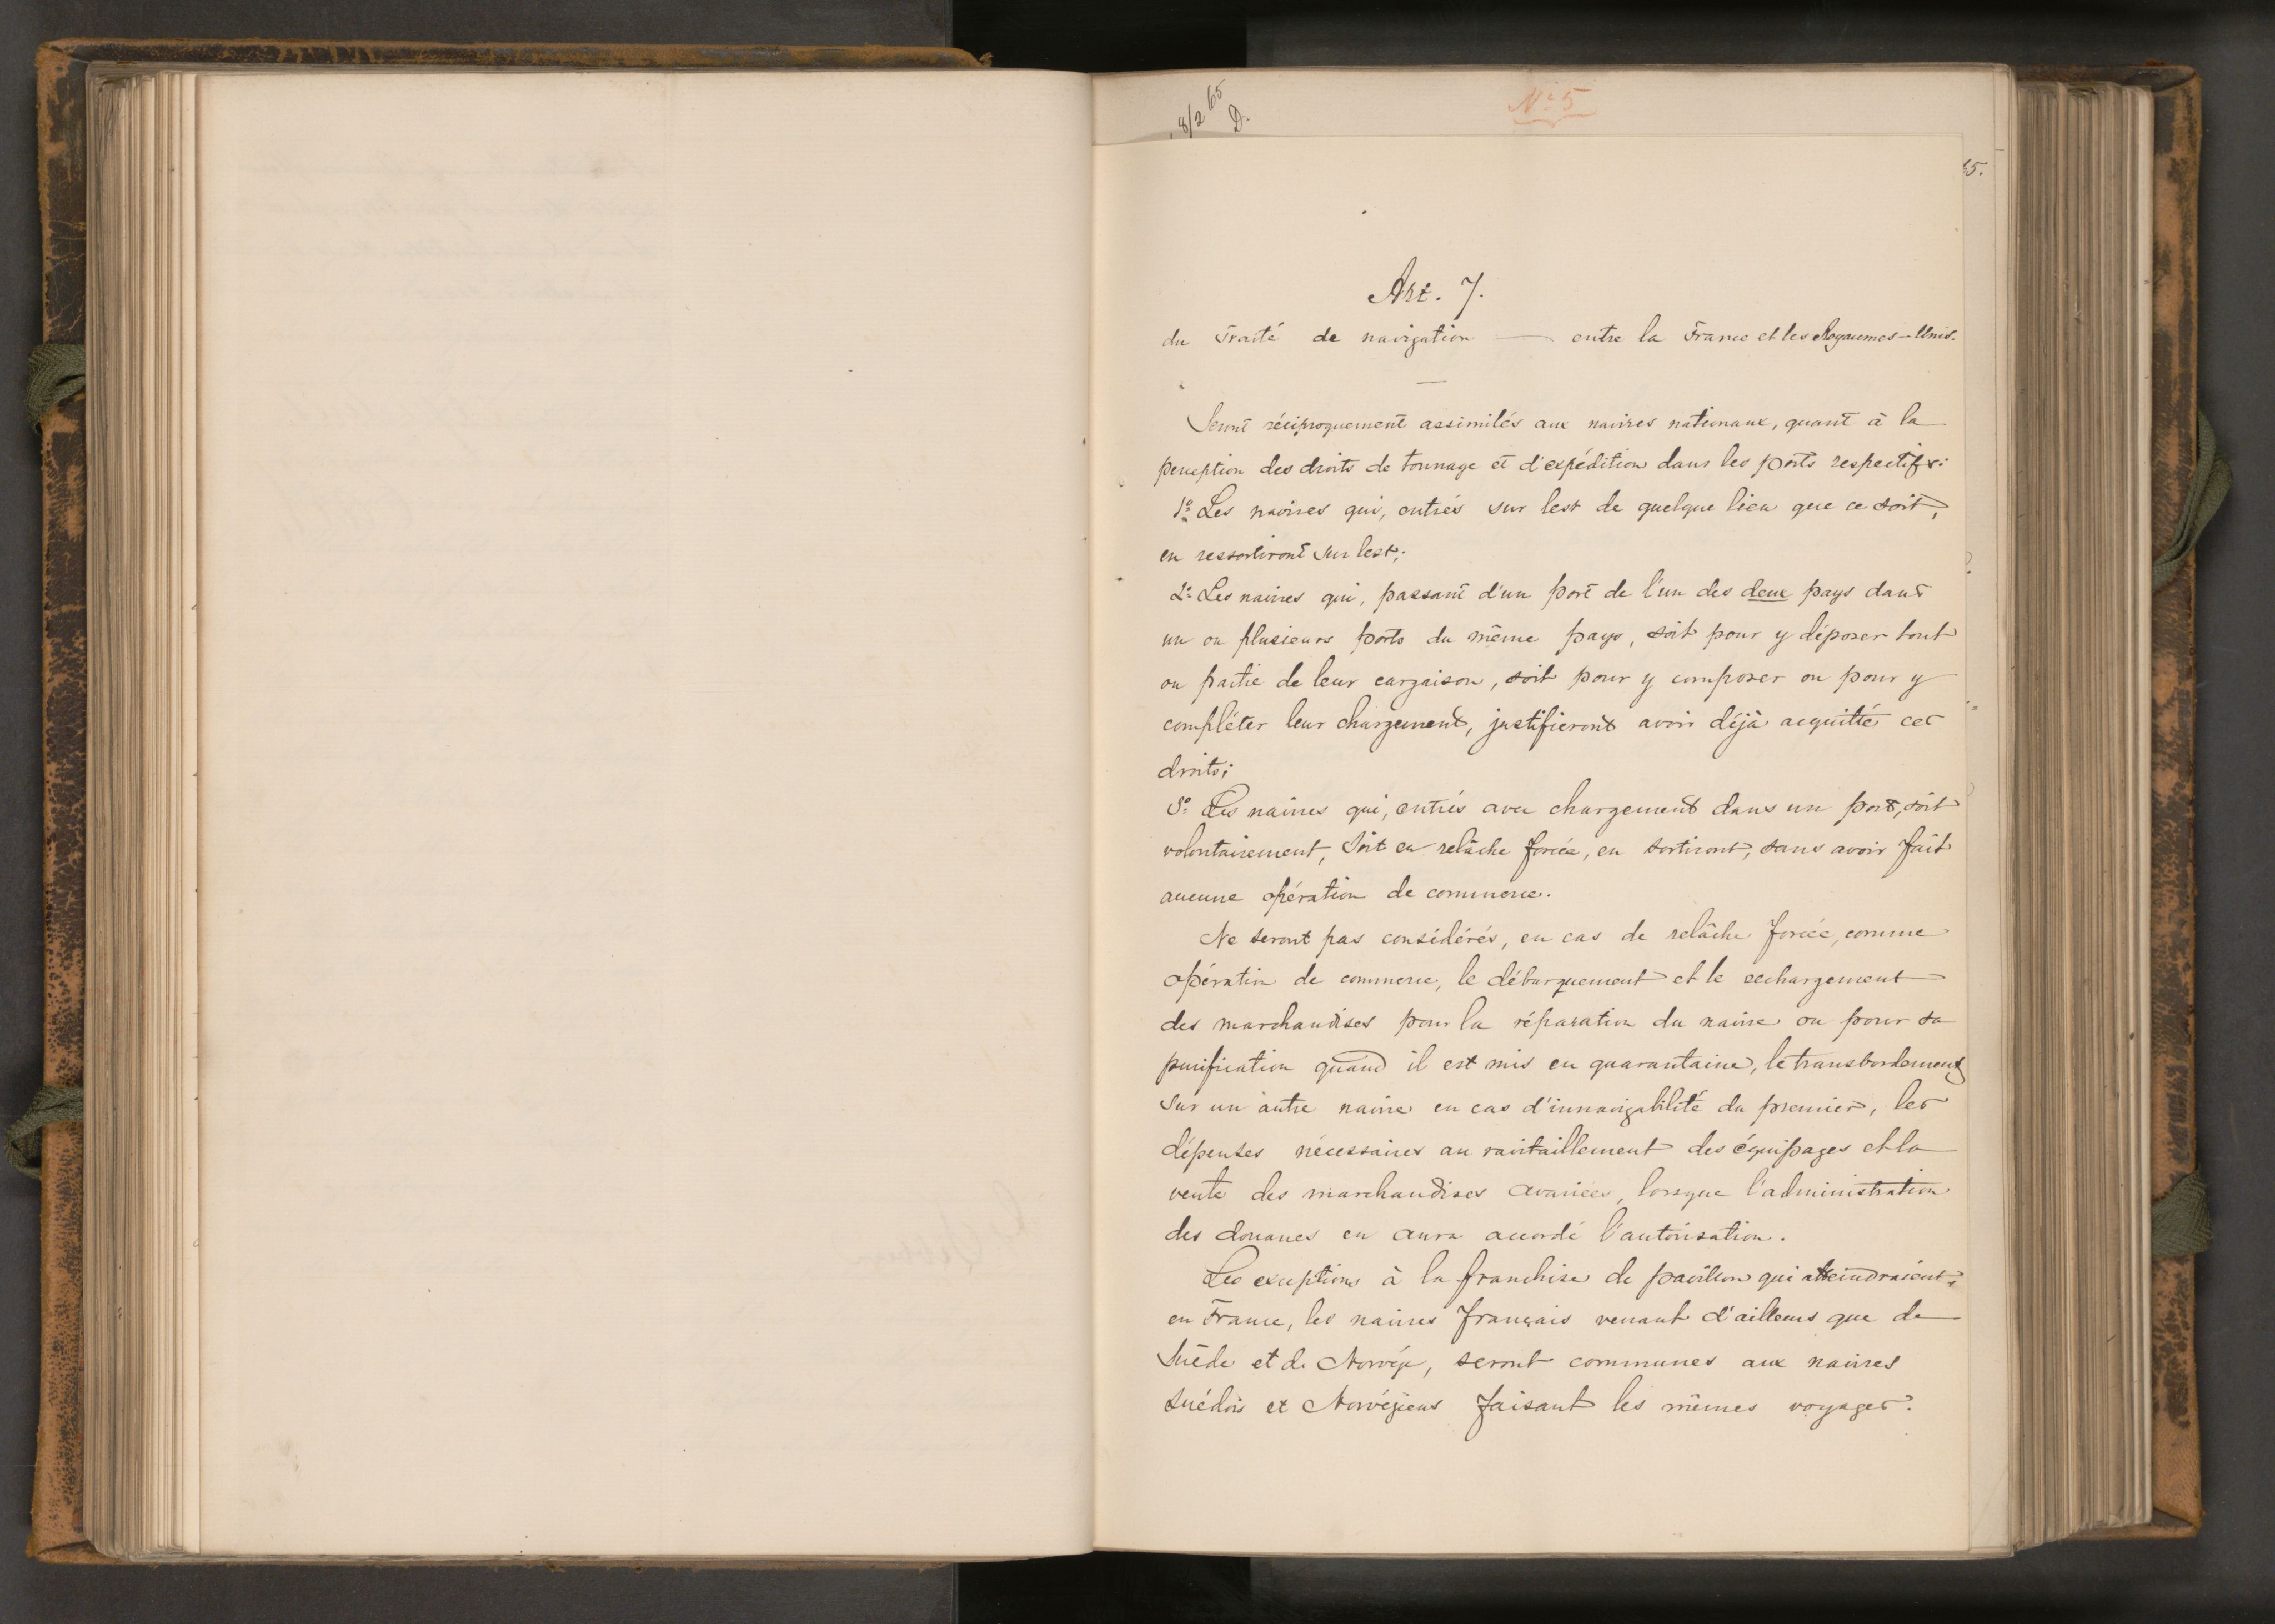 8/2 65
D.
No 5
Art. 7.
du Traité de navigation — entre la France et les Royaumes-Unis.
Seront réciproquement assimilés aux navires nationaux, quant à la
perception des droits de tonnage et d'expédition dans les ports respectifs:
1o Les navires qui, entrés sur lest de quelque lieu que ce soit,
en ressortiront sur lest;
2o Les navires qui, passant d'un port de l'un des deux pays dans
un ou plusieurs ports du même pays, soit pour y déposer tout
ou partie de leur cargaison, soit pour y composer ou pour y
compléter leur chargement, justifieront avoir déjà acquitté ces
droits;
3o Les navires qui, entrés avec chargement dans un port, soit
volontairement, soit en relâche forcée, en sortiront, sans avoir fait
aucune opération de commerce.
Ne seront pas considérés, en cas de relâche forcée, comme
opération de commerce, le débarquement et le rechargement
des marchandises pour la réparation du navire ou pour sa
purification quand il est mis en quarantaine, le transbordement
sur un autre navire en cas d'innavigabilité du premier, les
dépenses nécessaires au ravitaillement des équipages et la
vente des marchandises avariées, lorsque l'administration
des douanes en aura accordé l'autorisation.
Les exceptions à la franchise de pavillon qui atteindraient,
en France, les navires français venant d'ailleurs que de
Suède et de Norvège, seront communes aux navires
suédois et Norvégiens faisant les mêmes voyages.